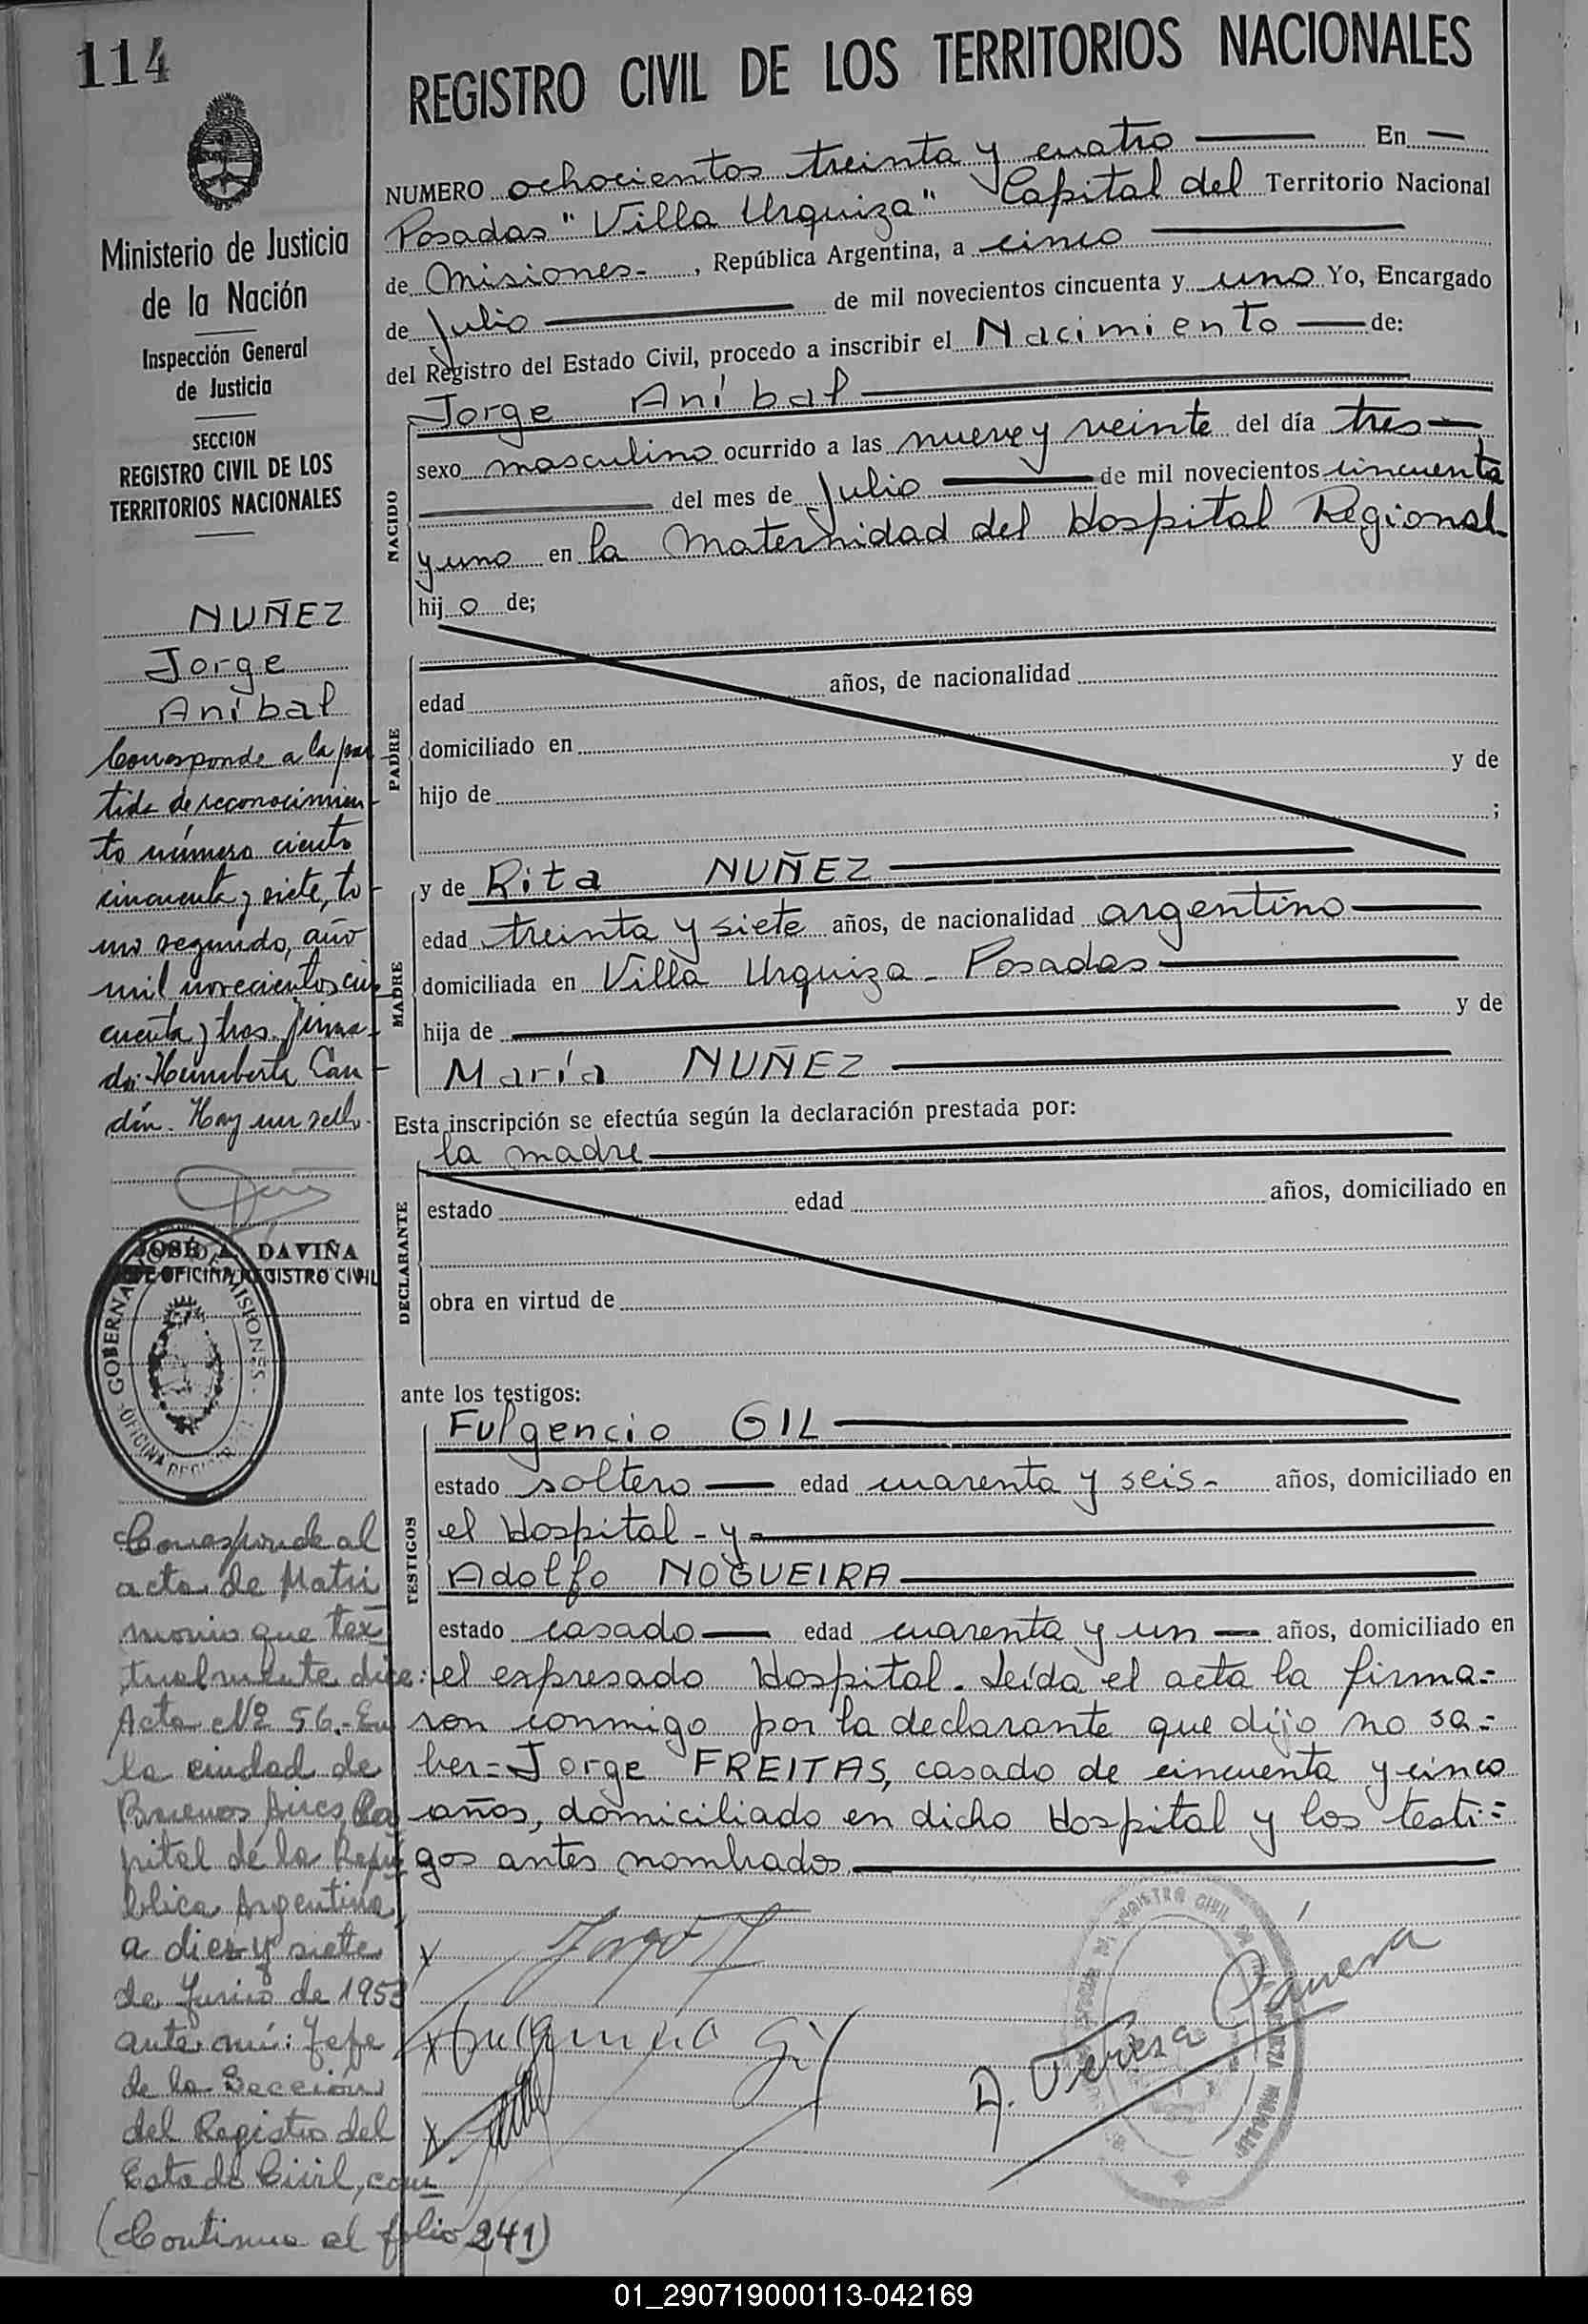 114
REGISTRO CIVIL DE LOS TERRITORIOS NACIONALES
Ministerio de Justicia
de la Nación
Inspección General
de Justicia
SECCION
REGISTRO CIVIL DE LOS
TERRITORIOS NACIONALES
NUÑEZ
Jorge
Aníbal
Corresponde a la par
tida de reconocimien-
to número ciento
cincuenta y siete, to-
mo segundo, año
mil novecientos cin
cuenta y tres. Firma-
do: Humberto Can-
din. Hay un sello.
JOSÉ A. DAVIÑA
JEFE OFICINA REGISTRO CIVIL
GOBERNACION DE MISIONES
OFICINA REGISTRO CIVIL
Corresponde al
acta de Matri
monio que tex
tualmente dice:
Acta Nº 56.- En
la ciudad de
Buenos Aires, Ca
pital de la Repú
blica Argentina,
a diez y siete
de Junio de 1953
ante mí: Jefe
de la Sección
del Registro del
Estado Civil, com
(Continua al folio 241)
NUMERO ochocientos treinta y cuatro En
Posadas "Villa Urquiza" Capital del Territorio Nacional
de Misiones-, República Argentina, a cinco
de Julio de mil novecientos cincuenta y uno Yo, Encargado
del Registro del Estado Civil, procedo a inscribir el Nacimiento de:
NACIDO
Jorge Aníbal
sexo masculino ocurrido a las nueve y veinte del día tres
del mes de Julio de mil novecientos cincuenta
y uno en la Maternidad del Hospital Regional
hijo de;
PADRE
edad años, de nacionalidad
domiciliado en
hijo de y de
;
MADRE
y de Rita NUÑEZ
edad treinta y siete años, de nacionalidad argentino
domiciliada en Villa Urquiza - Posadas
hija de y de
María NUÑEZ
Esta inscripción se efectúa según la declaración prestada por:
DECLARANTE
la madre
estado edad años, domiciliado en
obra en virtud de
ante los testigos:
TESTIGOS
Fulgencio GIL
estado soltero edad cuarenta y seis- años, domiciliado en
el Hospital - y-
Adolfo NOGUEIRA
estado casado edad cuarenta y un años, domiciliado en
el expresado Hospital. Leída el acta la firma=
ron conmigo por la declarante que dijo no sa=
ber= Jorge FREITAS, casado de cincuenta y cinco
años, domiciliado en dicho Hospital y los testi=
gos antes nombrados
Fulgencio Gil
A. Teresa
01_290719000113-042169